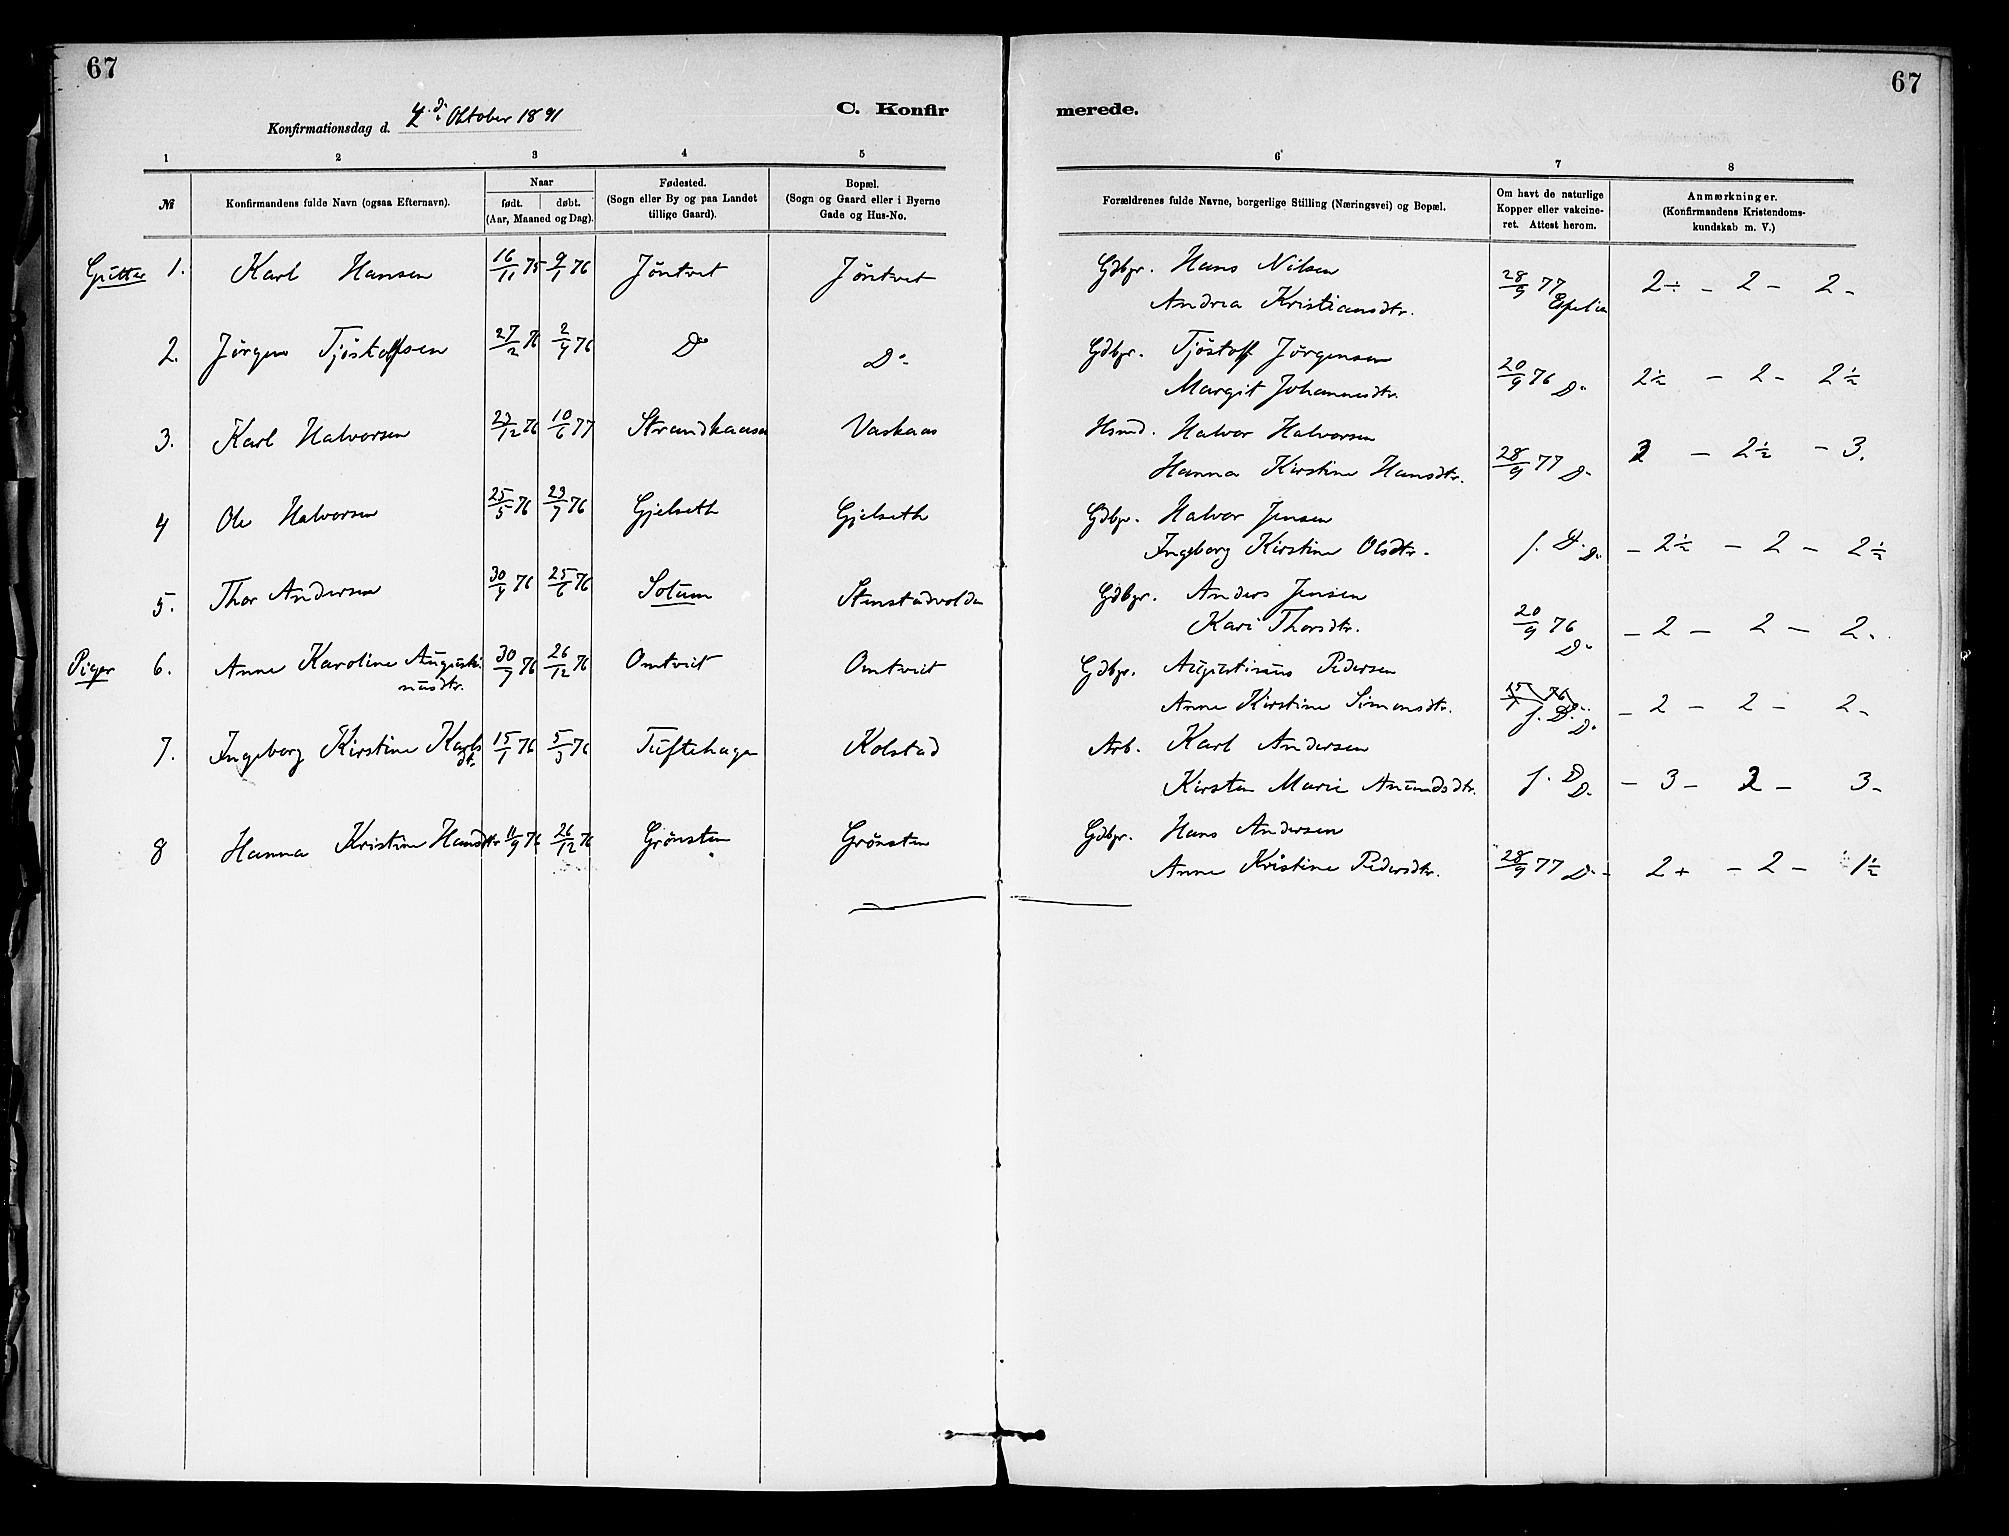 67
67
Konfirmationsdag d. 4.de Oktober 1891
C. Konfir
merede.
1 2 3 4 5
6 7 8
№
Konfirmandens fulde Navn (ogsaa Efternavn).
Naar
født. døbt.
(Aar, Maaned og Dag).
Fødested.
(Sogn eller By og paa Landet
tillige Gaard).
Bopæl.
(Sogn og Gaard eller i Byerne
Gade og Hus-No.
Forældrenes fulde Navne, borgerlige Stilling (Næringsvei) og Bopæl.
Om havt de naturlige
Kopper eller vakcine-
ret. Attest herom.
Anmærkninger.
(Konfirmandens Kristendoms-
kundskab m. V.)
Gutter 1. Karl Hansen 16/11 75 9/1 76 Jøntvet Jøntvet Gdbgr. Hans Nilsen
Andrea Kristiansdtr. 28/9 77 2÷ - 2 - 2 -
2. Jørgen Tjøstolfsen 27/2 76 2/4 76 Do Do Gdbgr. Tjøstolf Jørgensen
Margit Johannesdtr. 20/9 76 Do 2½ - 2 - 2½
3. Karl Halvorsen 23/12 76 10/6 77 Strandkaasa Vaskaas Hsmd. Halvor Halvorsen
Hanna Kirstine Hansdtr. 28/9 77 Do - 2½ - 3.
4 Ole Halvorsen 25/5 76 23/7 76 Gjelseth Gjelseth Gdbgr. Halvor Jensen
Ingeborg Kirstine Olsdtr. f. D. Do - 2½ - 2 - 2½
5. Thor Andersen 30/4 76 25/6 76 Solum Stenstadvolden Gdbgr. Anders Jensen
Kari Thorsdtr. 20/9 76 Do - 2 - 2 - 2.
Piger 6. Anne Karoline Augusti-
nusdtr. 30/7 76 26/12 76 Omtvet Omtveit Gdbgr. Augustinus Pedersen
Anne Kirstine Simonsdtr. f. D. Do - 2 - 2 - 2 -
7. Ingeborg Kirstine Karls
dtr. 15/1 76 5/3 76 Tuftehagen Kolstad Arb. Karl Andersen
Kirsten Marie Amundsdtr. f. D. Do - 3 - 2 - 3 -
8 Hanna Kristine Hansdtr 11/9 76 26/12 76 Grønsten Grønsten Gdbgr. Hans Andersen
Anne Kristine Pedersdtr. 28/9 77 Do - 2+ - 2 - 1½